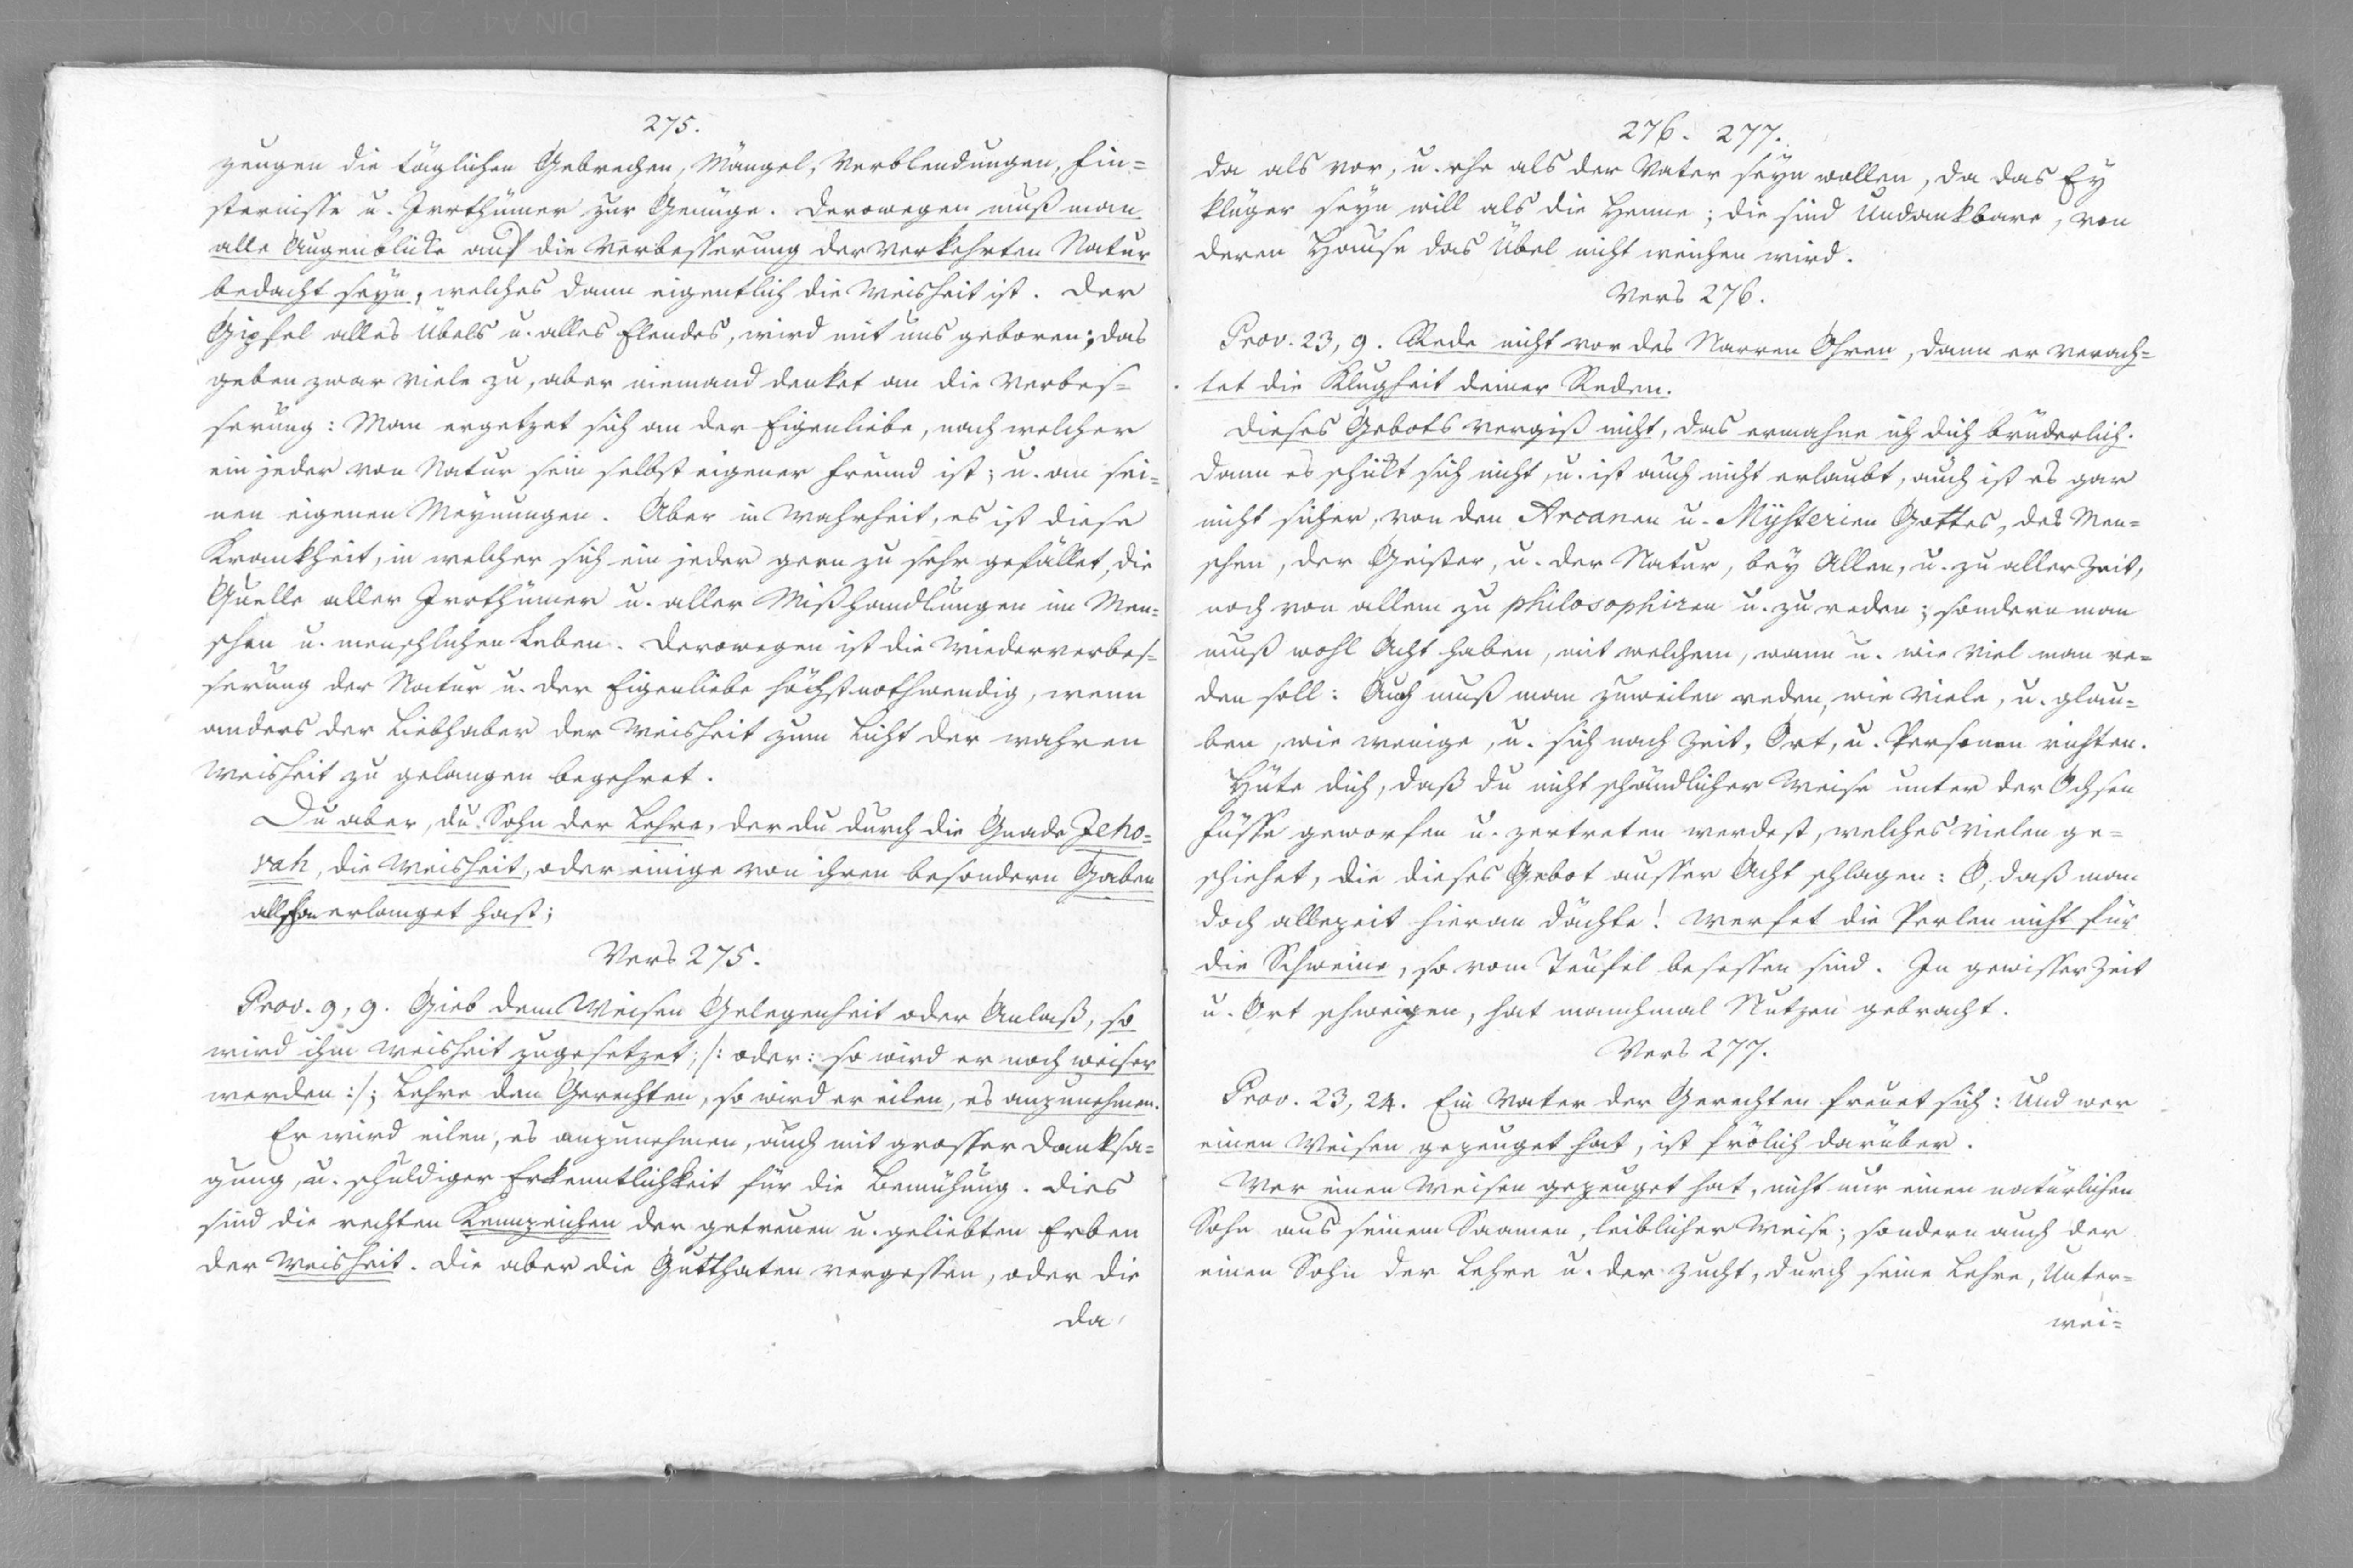 275.
zeugen die täglichen Gebrechen, Mängel, Verblendungen, Fin=
sternisse u. Irrthümer zur Genüge. Derowegen muß man
alle Augenblicke auf die Verbesserung der verkehrten Natur
bedacht seyn, welches dann eigentlich die Weisheit ist. Der
Gipfel alles Übels u. alles Elendes, wird mit uns geboren; das
geben zwar viele zu, aber niemand denket an die Verbes=
serung: Man ergetzet sich an der Eigenliebe, nach welcher
ein jeder von Natur sein selbst eigener Freund ist; u. an sei=
nen eigenen Meynungen. Aber in Wahrheit, es ist diese
Krankheit, in welcher sich ein jeder gern zu sehr gefället, die
Quelle aller Irrthümer u. aller Mißhandlungen im Men=
schen u. menschlichen Leben. Derowegen ist die Wiederverbes=
serung der Natur u. der Eigenliebe höchstnothwendig, wenn
anders der Liebhaber der Weisheit zum Licht der wahren
Weisheit zu gelangen begehret.
Du aber, du Sohn der Lehre, der du durch die Gnade Jeho=
vah, die Weisheit, oder einige von ihren besondern Gaben
allschon erlanget hast;
Vers 275.
Prov. 9, 9. Gieb dem Weisen Gelegenheit oder Anlaß, so
wird ihm Weisheit zugesetzet; /: oder: so wird er noch weiser
werden :/; Lehre den Gerechten, so wird er eilen, es anzunehmen.
Er wird eilen, es anzunehmen, auch mit grosser Danksa=
gung, u. schuldiger Erkenntlichkeit für die Bemühung. Dies
sind die rechten Kennzeichen der getreuen u. geliebten Erben
der Weisheit. Die aber die Gutthaten vergessen, oder die
da
276. 277.
da als vor, u. ehe als der Vater seyn wollen, da das Ey
klüger seyn will als die Henne; die sind Undankbare, von
deren Hause das Übel nicht weichen wird.
Vers 276.
Prov. 23, 9. Rede nicht vor des Narren Ohren, dann er verach=
tet die Klugheit deiner Reden.
Dieses Gebots vergiß nicht, das ermahne ich dich brüderlich.
Dann es schickt sich nicht, u. ist auch nicht erlaubt, auch ist es gar
nicht sicher, von den Arcanen u. Mysterien Gottes, des Men=
schen, der Geister, u. der Natur, bey Allen, u. zu aller Zeit,
noch von allem zu philosophiren u. zu reden; sondern man
muß wohl Acht haben, mit welchem, wann u. wie viel man re=
den soll: Auch muß man zuweilen reden, wie viele, u. glau=
ben, wie wenige, u. sich nach Zeit, Ort, u. Personen richten.
Hüte dich, daß du nicht schändlicher Weise unter der Ochsen
Füsse geworfen u. zertreten werdest, welches vielen ge=
schiehet, die dieses Gebot ausser Acht schlagen: O, daß man
doch allezeit hieran dächte! Werfet die Perlen nicht für
die Schweine, so vom Teufel besessen sind. In gewisser Zeit
u. Ort schweigen, hat manchmal Nutzen gebracht.
Vers 277.
Prov. 23, 24. Ein Vater der Gerechten freuet sich: Und wer
einen Weisen gezeuget hat, ist frölich darüber.
Wer einen Weisen gezeuget hat, nicht nur einen natürlichen
Sohn aus seinem Saamen, leiblicher Weise; sondern auch der
einen Sohn der Lehre u. der Zucht, durch seine Lehre, Unter=
wei=